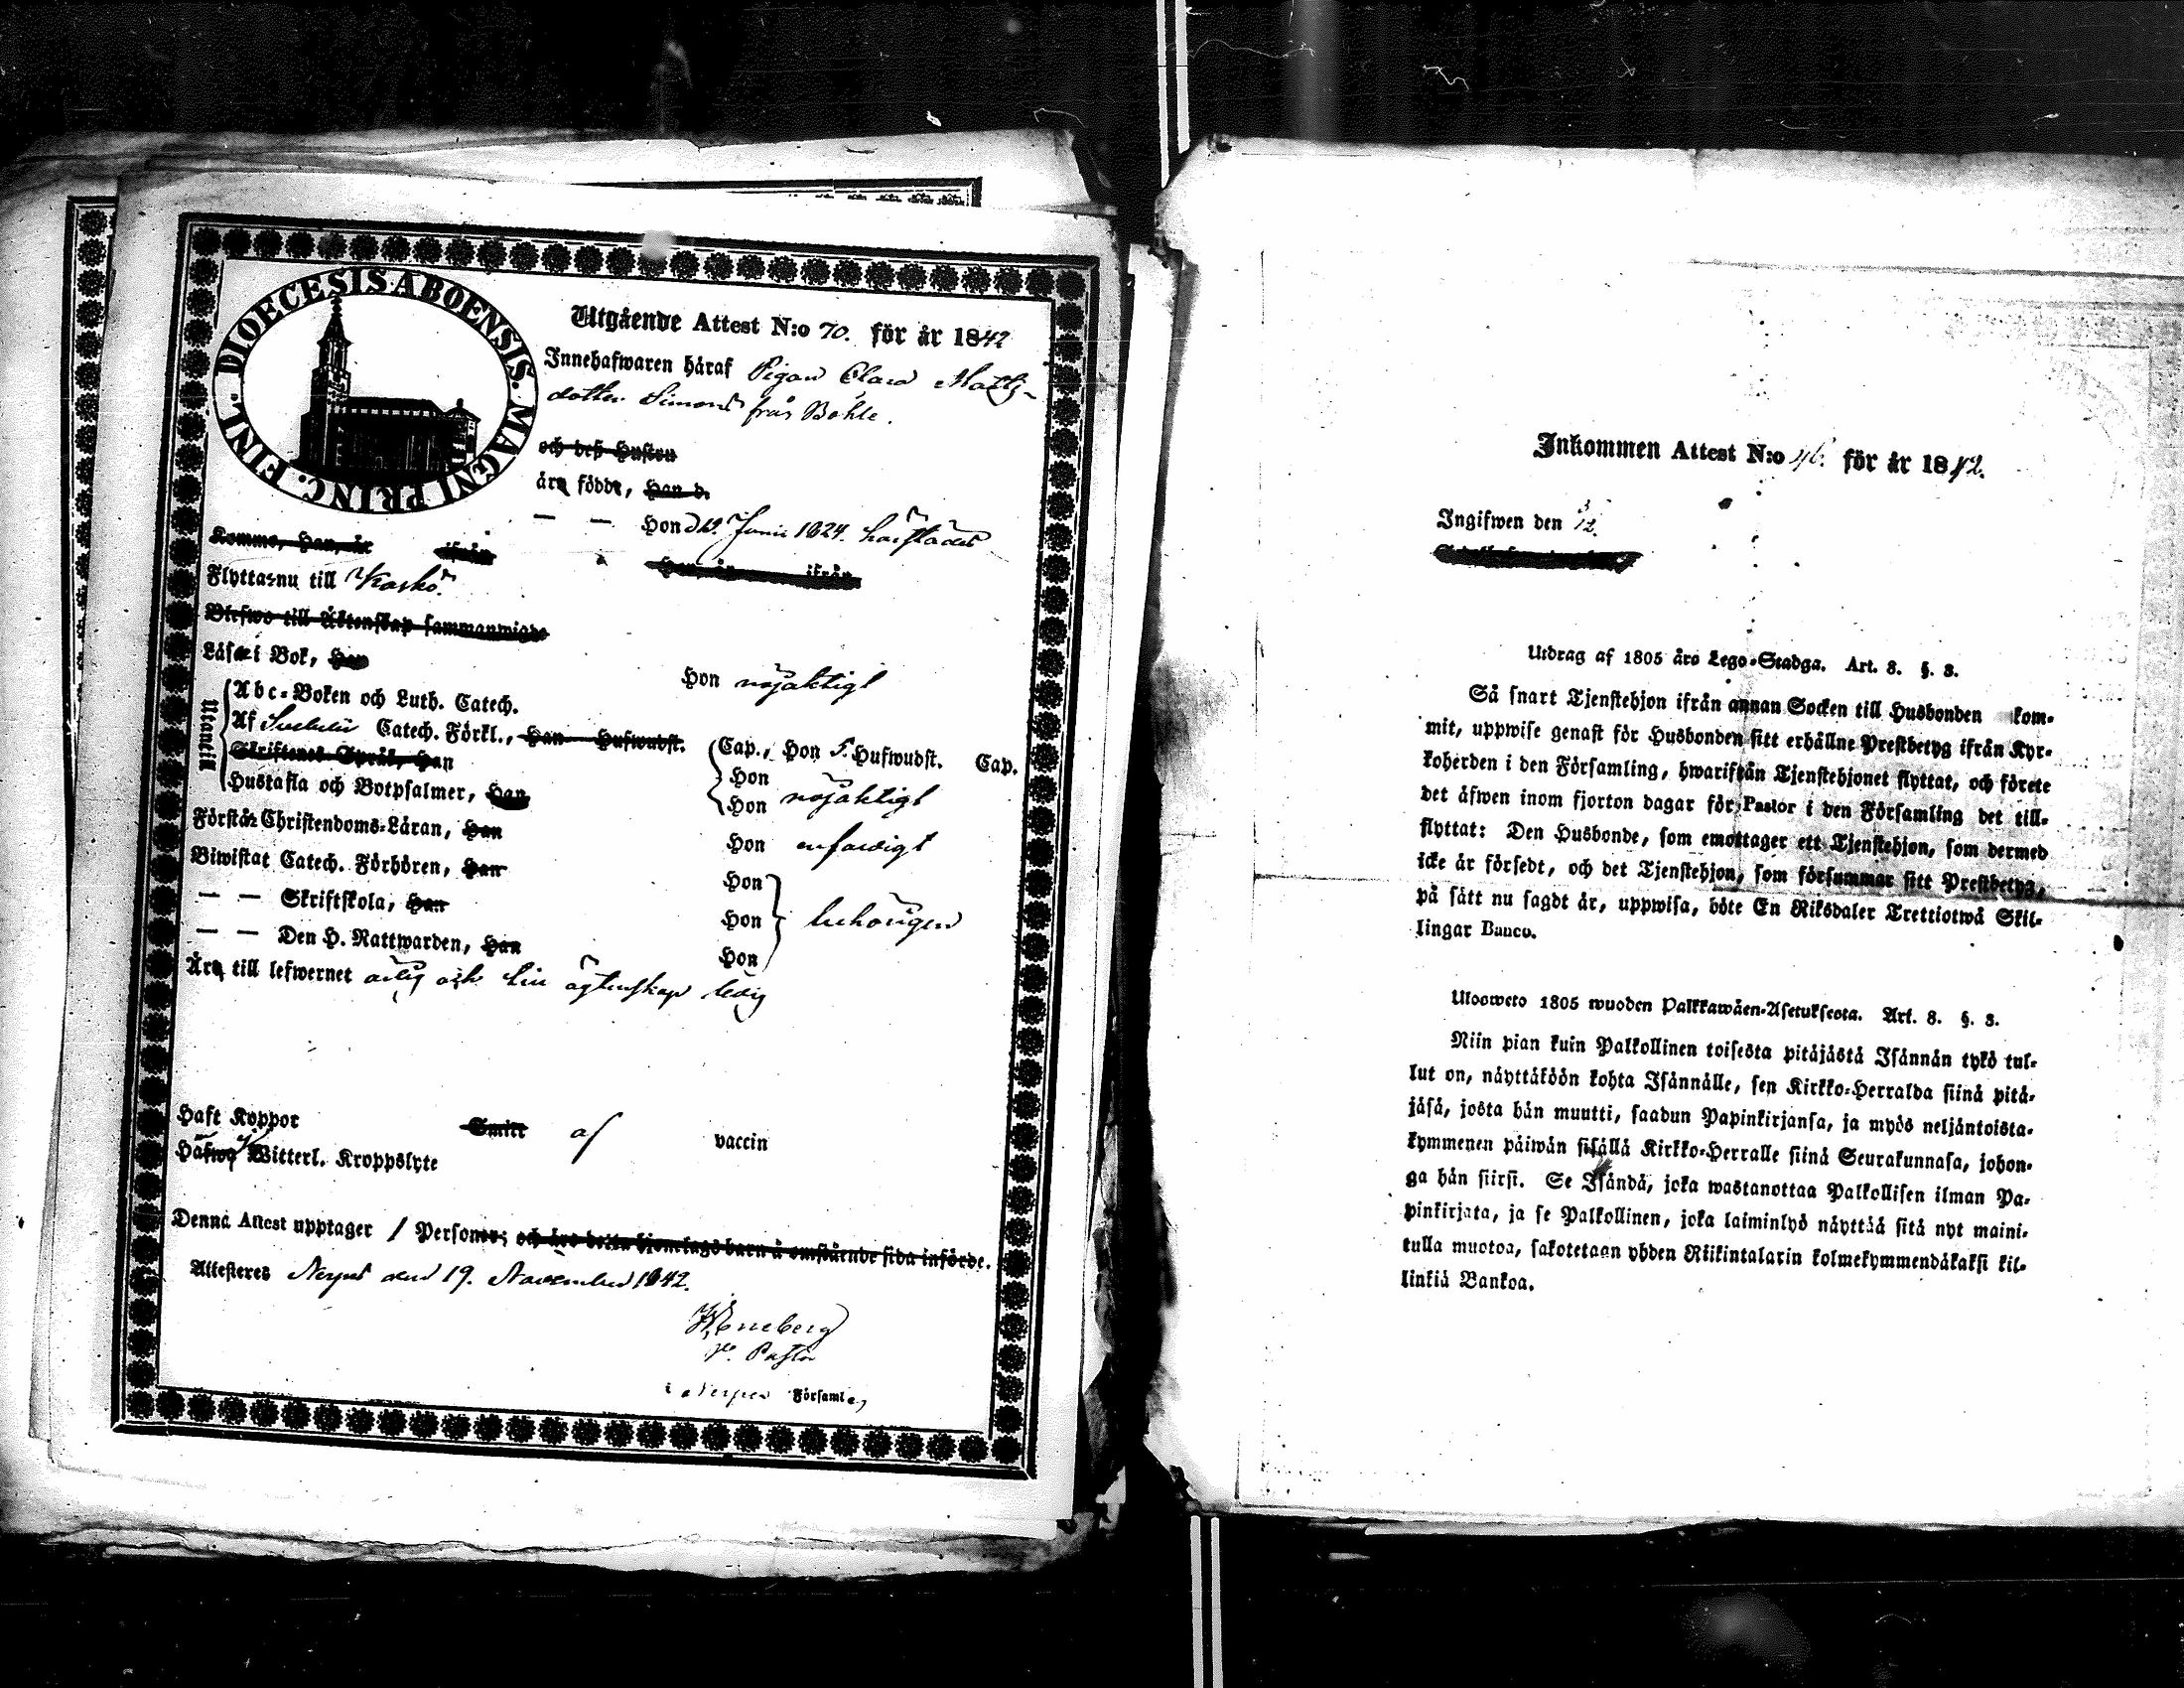 DIOECESIS ABOENSIS. MAGNI PRINC. FINL.
Utgående Attest N:o 70. för år 1842
Innehafwaren häraf Pigan Clara Matts-
dotter Simons från Böhle.
och deß Hustru
äro födde, Han d.
— — Hon d 12. Junii 1824. härstädes
Komme, Han, år ifrån Hon, år ifrån
Flyttar nu till Kaskö.
Blefwo till Äktenskap sammanwigde
Läser i Bok, Han Hon nöjaktigt
Utantill
Abc-Boken och Luth. Catech.
Af Svebelii Catech. Förkl., Han Hufwudst. Cap., Hon 5. Hufwudst. Cap.
Skriftenes Språk, Han Hon
Hustafla och Botpsalmer, Han Hon nöjaktigt
Förstår Christendoms-Läran, Han Hon enfaldigt
Biwistat Catech. Förhören, Han Hon
— — Skriftskola, Han Hon behörigen
— — Den H. Nattwarden, Han Hon
Äro till lefwernet ärlig och till ägtenskap ledig
Haft Koppor Smitt af vaccin
Häfwa Witterl. Kroppslyte
Denna Attest upptager 1 Personer; och äro deras hjonelags barn å omstående sida införde.
Attesteras Nerpes den 19. November 1842.
Pastor
i Nerpes Församl.
Inkommen Attest N:o 46. för år 1842.
Ingifwen den
Utdrag af 1805 års Lego-Stadga. Art. 8. §. 3.
Så snart Tjenstehjon ifrån annan Socken till Husbonden kom-
mit, uppwise genast för Husbonden sitt erhållne Prestbetyg ifrån Kyr-
koherden i den Församling, hwarifrån Tjenstehjonet flyttat, och förete
det äfwen inom fjorton dagar för Pastor i den Församling det till-
flyttat: Den Husbonde, som emottager ett Tjenstehjon, som dermed
icke är försedt, och det Tjenstehjon, som försummar sitt Prestbetyg,
på sätt nu sagdt är, uppwisa, böte En Riksdaler Trettiotwå Skil-
lingar Banco.
Ulosweto 1805 wuoden Palkkawäen-Asetuksesta. Art. 8. §. 3.
Niin pian kuin Palkollinen toisesta pitäjästä Isännän tykö tul-
lut on, näyttäköön kohta Isännälle, sen Kirkko-Herralda siinä pitä-
jäsä, josta hän muutti, saadun Papinkirjansa, ja myös neljäntoista-
kymmenen päiwän sisällä Kirkko-Herralle siinä Seurakunnasa, johon-
ga hän siirsi. Se Isändä, joka wastanottaa Palkollisen ilman Pa-
pinkirjata, ja se Palkollinen, joka laiminlyö näyttää sitä nyt maini-
tulla muotoa, sakotetaan yhden Riikintalarin kolmekymmendäkaksi kil-
linkiä Bankoa.